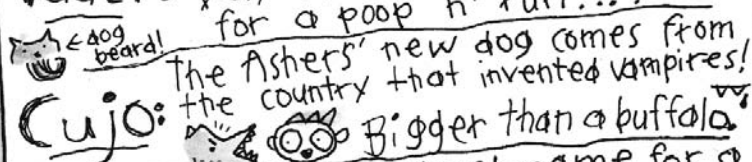 for a poop n'
← dog beard!
The Ashers' new dog comes from
Cujo: the country that invented vampires!
Bigger than a buffalo